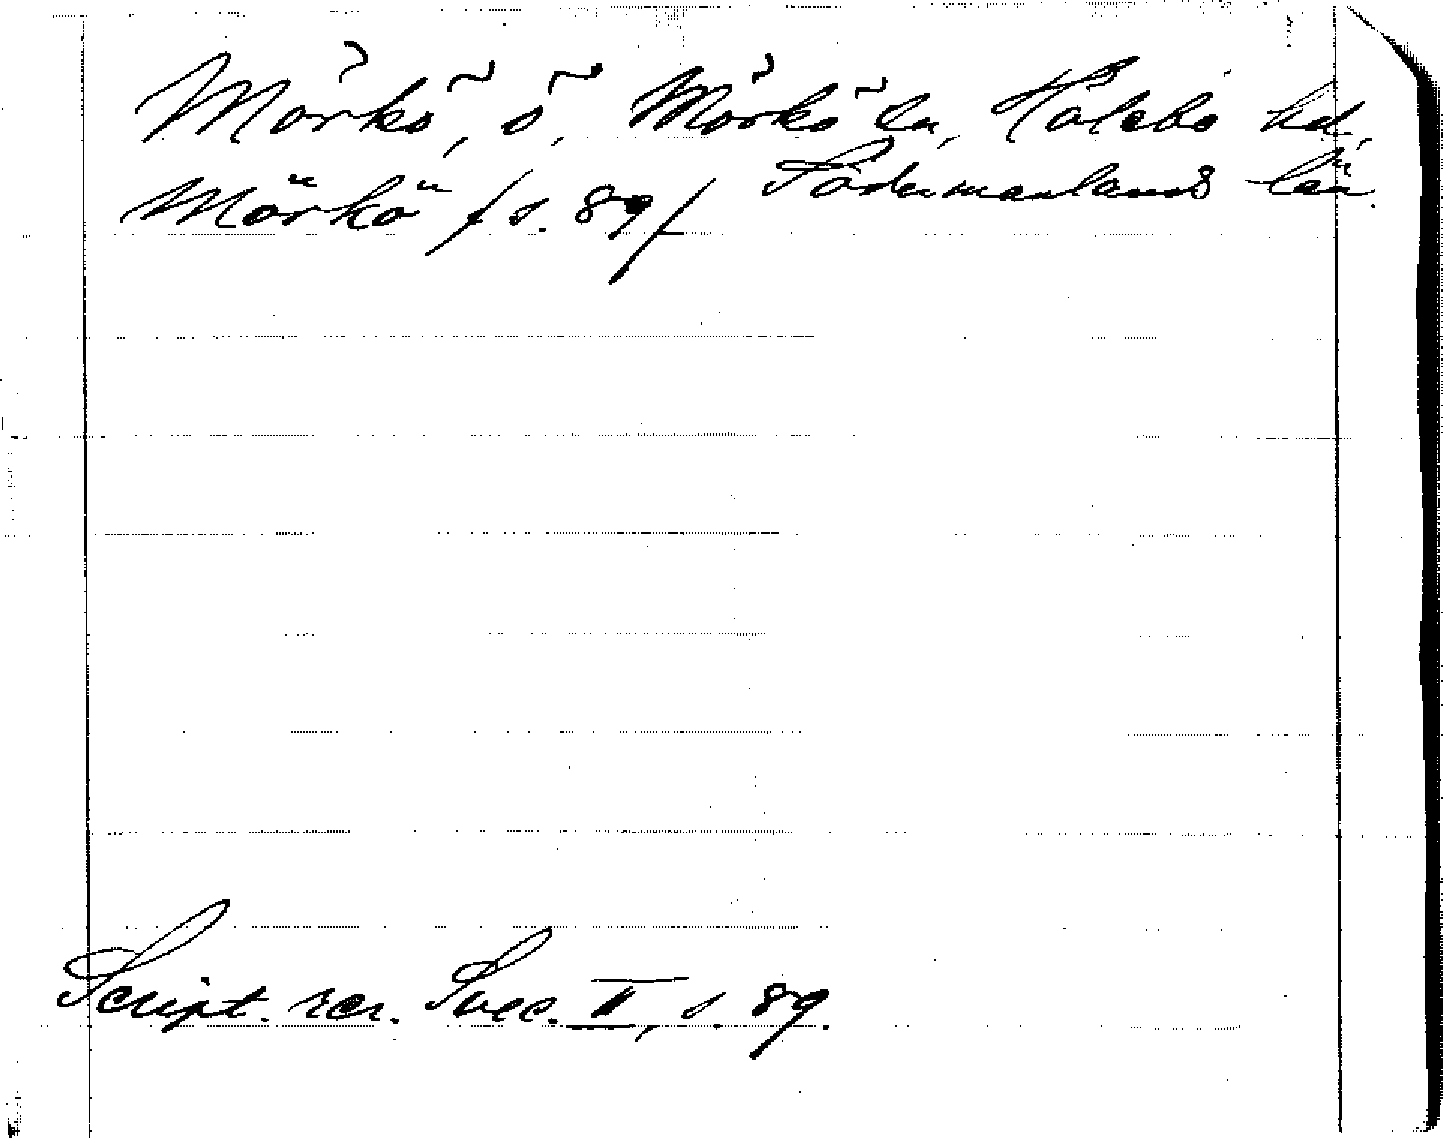 Mörkö, ö, Mörkö sn, Hölebo hd,
Södermanlands län.
Mörkö / s. 89/
Script. rer. Svec. II, s. 89.